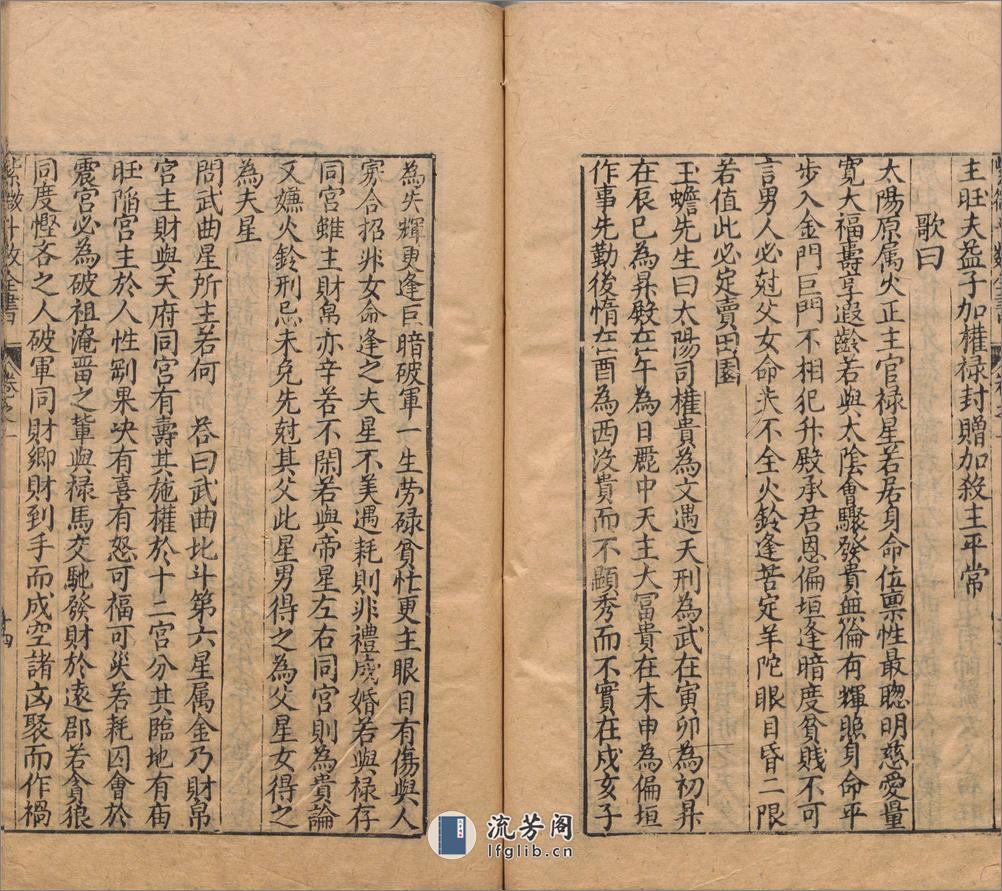 主旺夫益子加權禄封贈加殺主平常
歌曰
太陽原属火正主官禄星若居身命位禀性最聦明慈愛量
寛大福壽享遐齡若與太陰會驟發貴無倫有輝照身命平
步入金門巨門不相犯升殿承君恩偏垣逢暗度貧賎不可
言男人必尅父女命夫不全火鈴逢苦定羊陀眼目昏二限
若值此必定賣田園
玉蟾先生曰太陽司權貴為文遇天刑為武在寅卯為初昇
在辰巳為昇殿在午為日麗中天主大冨貴在未申為偏垣
作事先勤後惰在酉為西没貴而不顯秀而不實在戍亥子
為失輝更逢巨暗破軍一生勞碌貧忙更主眼目有傷與人
寡合招非女命逢之夫星不美遇耗則非禮成婚若與禄存
同宮雖主財帛亦辛苦不閑若與帝星左右同宮則為貴論
又嫌火鈴刑忌未免先尅其父此星男得之為父星女得之
為夫星
問武曲星所主若何
答曰武曲北斗第六星属金乃財帛
宮主財與天府同宮有壽其施權於十二宮分其臨地有庙
旺陷宮主於人性剛果决有喜有怒可福可災若耗囚會於
震宮必為破祖淹畱之輩與禄馬交馳發財於遠郡若貪狼
同度慳吝之人破軍同財鄉財到手而成空諸凶聚而作禍
紫微斗数全書
卷之一
十四
流芳阁
lfglib.cn